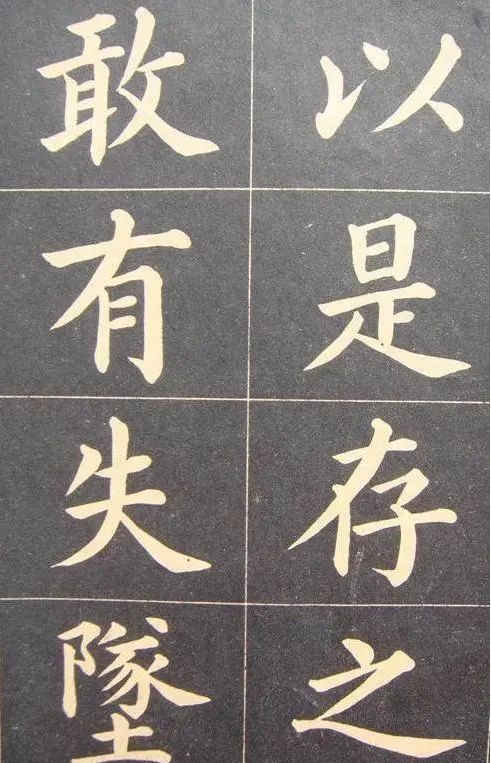 以是存之
敢有失墜